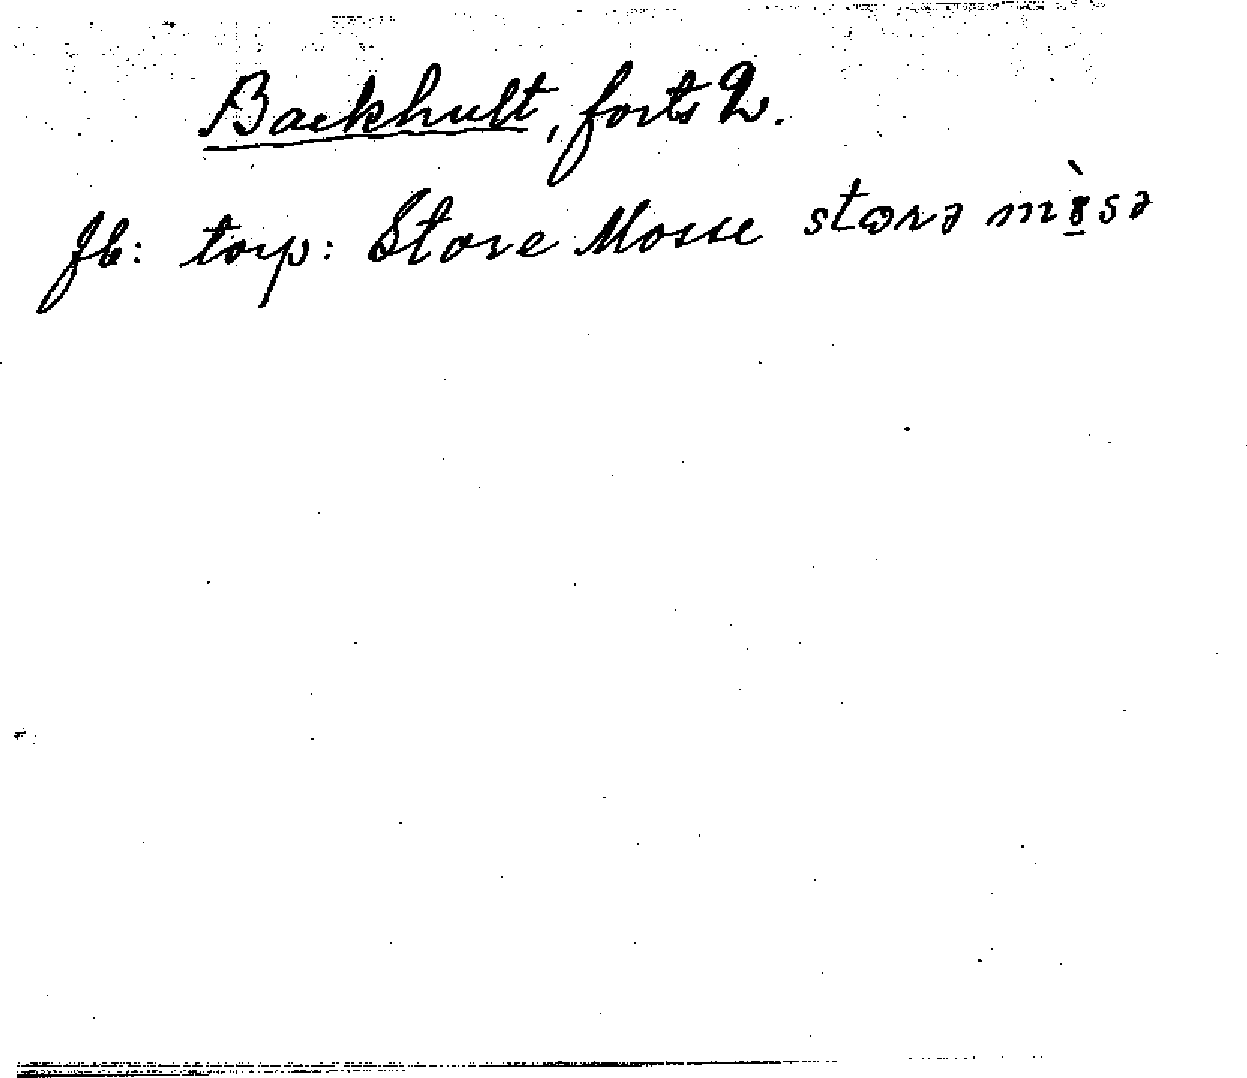 Backhult, forts 2.
fb: torp: Store Mosse stωrə mɤ̱̀sə